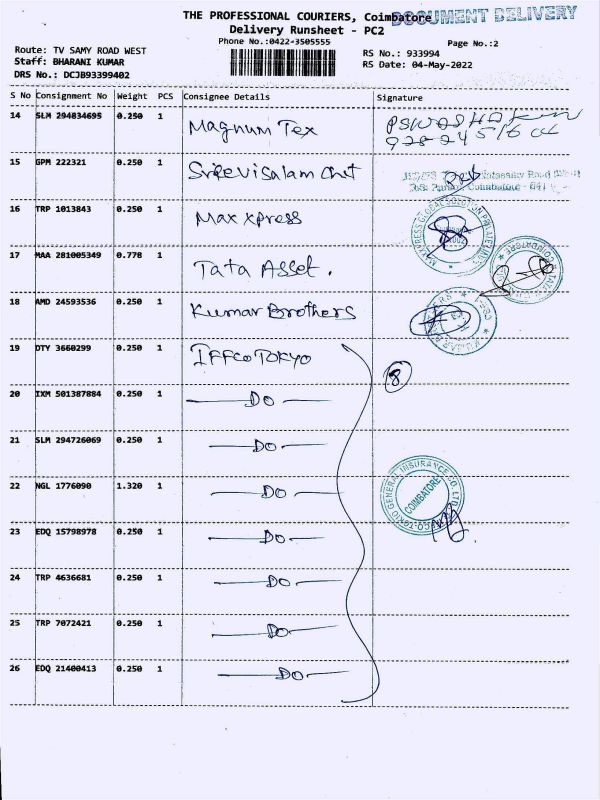 THE PROFESSIONAL COURIERS, Coimbatore
DOCUMENT DELIVERY
Delivery Runsheet - PC2
Phone No.:0422-3505555
Page No.:2
Route: TV SAMY ROAD WEST
RS No.: 933994
Staff: BHARANI KUMAR
RS Date: 04-May-2022
DRS No.: DCJB93399402
S No Consignment No Weight PCS Consignee Details Signature
14 SLM 294834695 0.250 1 Magnum Tex
15 GPM 222321 0.250 1 Sreevisalam Chit
16 TRP 1013843 0.250 1 Maxxpress
17 MAA 281005349 0.778 1 Tata Asset.
18 AMD 24593536 0.250 1 Kumar Brothers
19 DTY 3660299 0.250 1 IFFCO TOKYO
8
20 IXM 501387884 0.250 1 DO
21 SLM 294726069 0.250 1 DO
22 NGL 1776090 1.320 1 DO
COIMBATORE
23 EDQ 15798978 0.250 1 DO
24 TRP 4636681 0.250 1 DO
25 TRP 7072421 0.250 1 DO
26 EDQ 21400413 0.250 1 DO